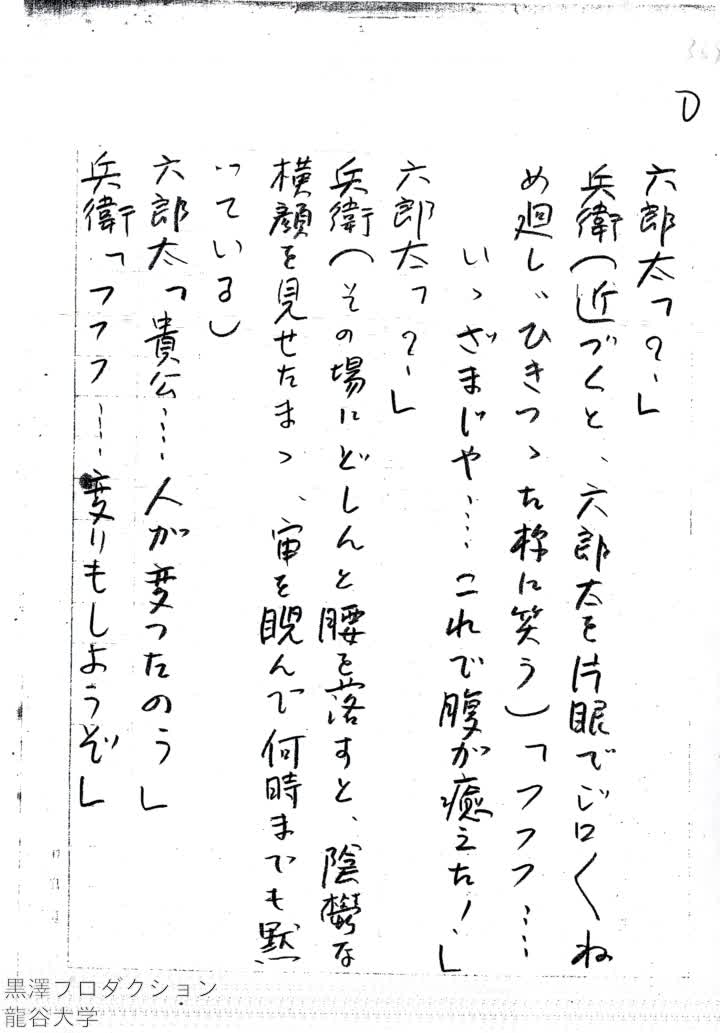 D
六郎太「？―」
兵衛（近づくと、六郎太を片眼でジロ〱ね
め廻し、ひきつゝた様に笑う）「フフフ……
いゝざまじゃ……これで腹が癒えた！」
六郎太「？―」
兵衛（その場にどしんと腰を落すと、陰鬱な
横顔を見せたまゝ、宙を睨んで何時までも黙
っている）
六郎太「貴公……人が変ったのう」
兵衛「フフフ……変りもしようぞ」
黒澤プロダクション
龍谷大学